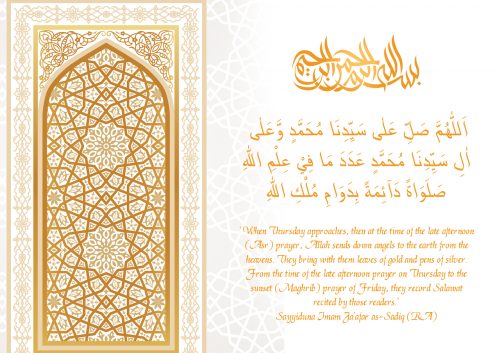 بسم الله الرحمن الرحيم
اَللّٰهُمَّ صَلِّ عَلٰى سَيِّدِنَا مُحَمَّدٍ وَّعَلٰى
اٰلِ سَيِّدِنَا مُحَمَّدٍ عَدَدَ مَا فِيْ عِلْمِ اللّٰهِ
صَلَوَاةً دَآئِمَةً بِدَوَامِ مُلْكِ اللّٰهِ
'When Thursday approaches, then at the time of the late afternoon
(Asr) prayer, Allah sends down angels to the earth from the
heavens. They bring with them leaves of gold and pens of silver.
From the time of the late afternoon prayer on Thursday to the
sunset (Maghrib) prayer of Friday, they record Salawat
recited by those readers.'
Sayyiduna Imam Za'afar as-Sadiq (RA)